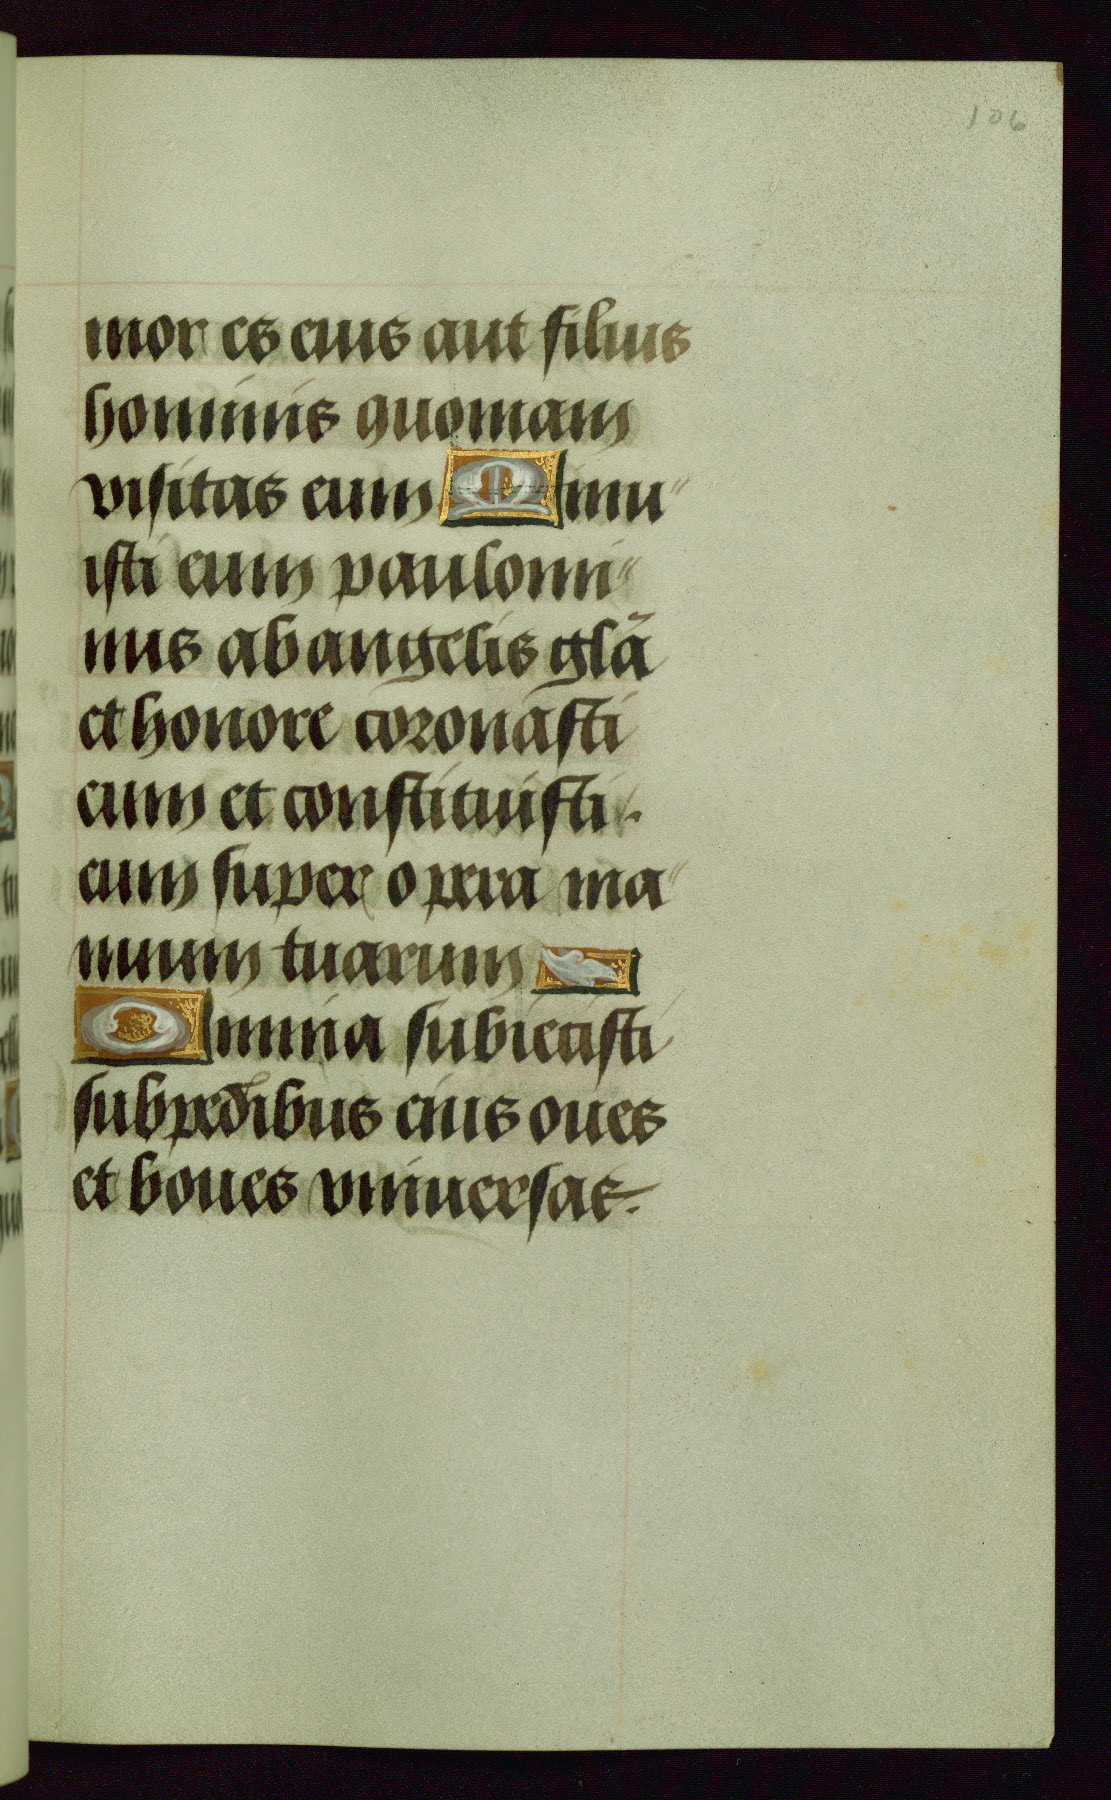 106
mor es eius aut filius
hominis quoniam
visitas eum Minu
isti eum paulomi
nus ab angelis glã
et honore coronasti
eum et constituisti
eum super opera ma
nuum tuarum
Omnia subiecisti
sub pedibus eius oues
et boues vniuersas